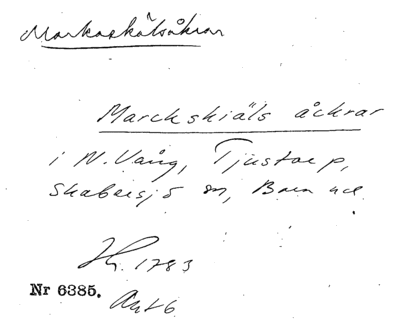 Markaskälsåkrar
Marckskiäls åckrar
i N. Vång, Tjustorp,
Skabersjö sn, Bara hd.
1783
Nr 6385.